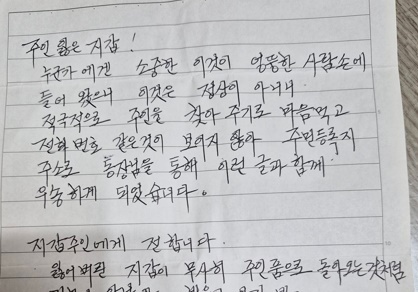 주인 잃은 지갑!
누군가에겐 소중한 이것이 엉뚱한 사람손에
들어 왔으니 이것은 정상이 아니니
적극적으로 주인을 찾아 주기로 마음먹고
전화 번호 같은것이 보이지 않아 주민등록지
주소로 통장님을 통해 이런 글과 함께
우송하게 되었습니다.
지갑주인에게 전합니다.
잃어버린 지갑이 무사히 주인품으로 돌아오는것처럼